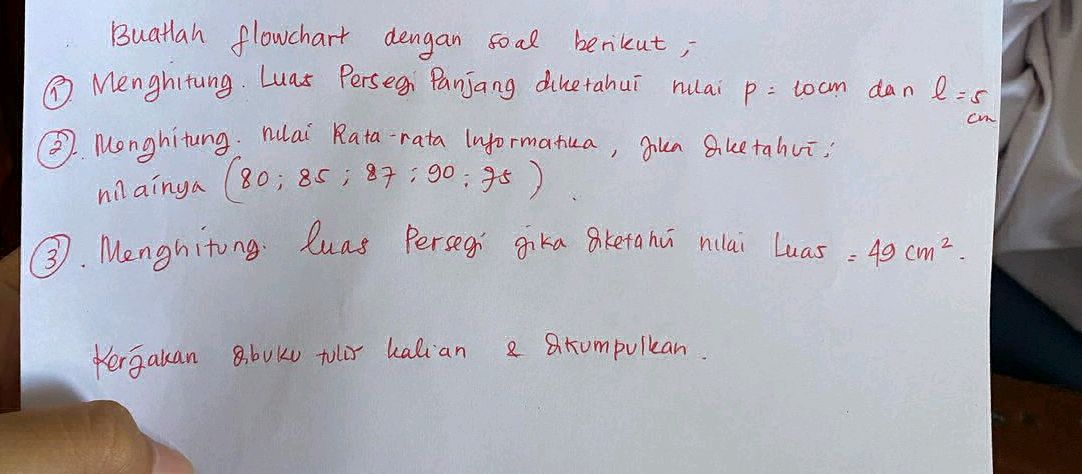 Buatlah flowchart dengan soal berikut ;-
①. Menghitung. Luas Persegi Panjang diketahui nilai p = 10 cm dan l = 5 cm
②. Menghitung. nilai Rata-rata Informatika, jika diketahui :
nilainya (80 ; 85 ; 87 ; 90 ; 75)
③. Menghitung. luas Persegi jika diketahui nilai Luas = 49 cm².
Kerjakan dibuku tulis kalian & dikumpulkan.